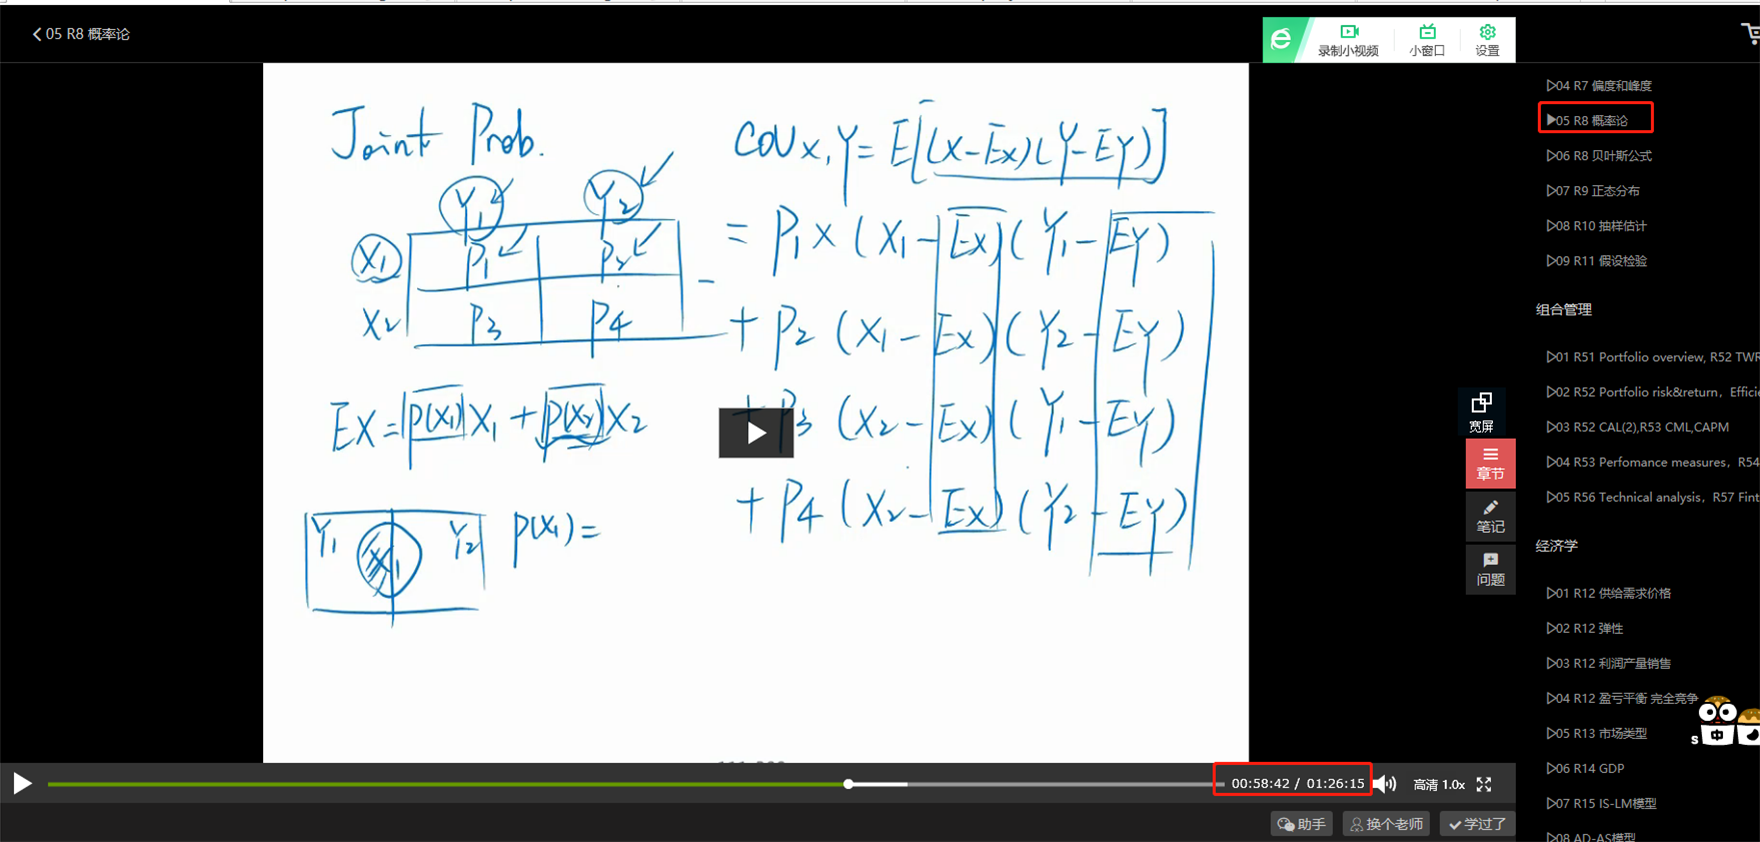 05 R8 概率论
录制小视频
小窗口
设置
Joint Prob.
Y1 Y2
X1 P1 P2
X2 P3 P4
EX = P(X1) X1 + P(X2) X2
Y1 X1 Y2
P(X1) =
COV X, Y = E[(X-EX)(Y-EY)]
= P1 × (X1 - EX)(Y1 - EY)
+ P2 (X1 - EX)(Y2 - EY)
+ P3 (X2 - EX)(Y1 - EY)
+ P4 (X2 - EX)(Y2 - EY)
宽屏
章节
笔记
问题
04 R7 偏度和峰度
05 R8 概率论
06 R8 贝叶斯公式
07 R9 正态分布
08 R10 抽样估计
09 R11 假设检验
组合管理
01 R51 Portfolio overview, R52 TWR
02 R52 Portfolio risk&return, Effici
03 R52 CAL(2),R53 CML,CAPM
04 R53 Perfomance measures, R54
05 R56 Technical analysis, R57 Fint
经济学
01 R12 供给需求价格
02 R12 弹性
03 R12 利润产量销售
04 R12 盈亏平衡 完全竞争
05 R13 市场类型
06 R14 GDP
07 R15 IS-LM模型
08 AD-AS模型
S 中
00:58:42 / 01:26:15
高清 1.0x
助手
换个老师
学过了